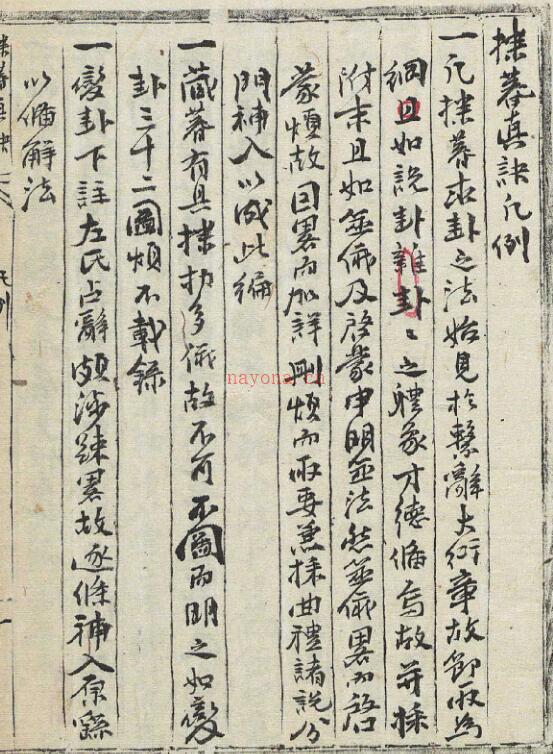 揲蓍真訣凡例
一凡揲蓍求卦之法始見於繫辭大衍章故節取爲
綱且如說卦雜卦〻之體象才德俻焉故并採
附末且如筮儀及啓蒙申明筮法然筮儀畧而啓
蒙煩故因畧而加詳刪煩而取要兼採曲禮諸說分
門補入以成此編
一藏蓍有具揲扐多儀故不可不啚而明之如變
卦三十二圖煩不載錄
一變卦下註左氏占辭頗涉踈畧故逐條補入
以俻解法
揲蓍真訣
凡例
nayona.cn